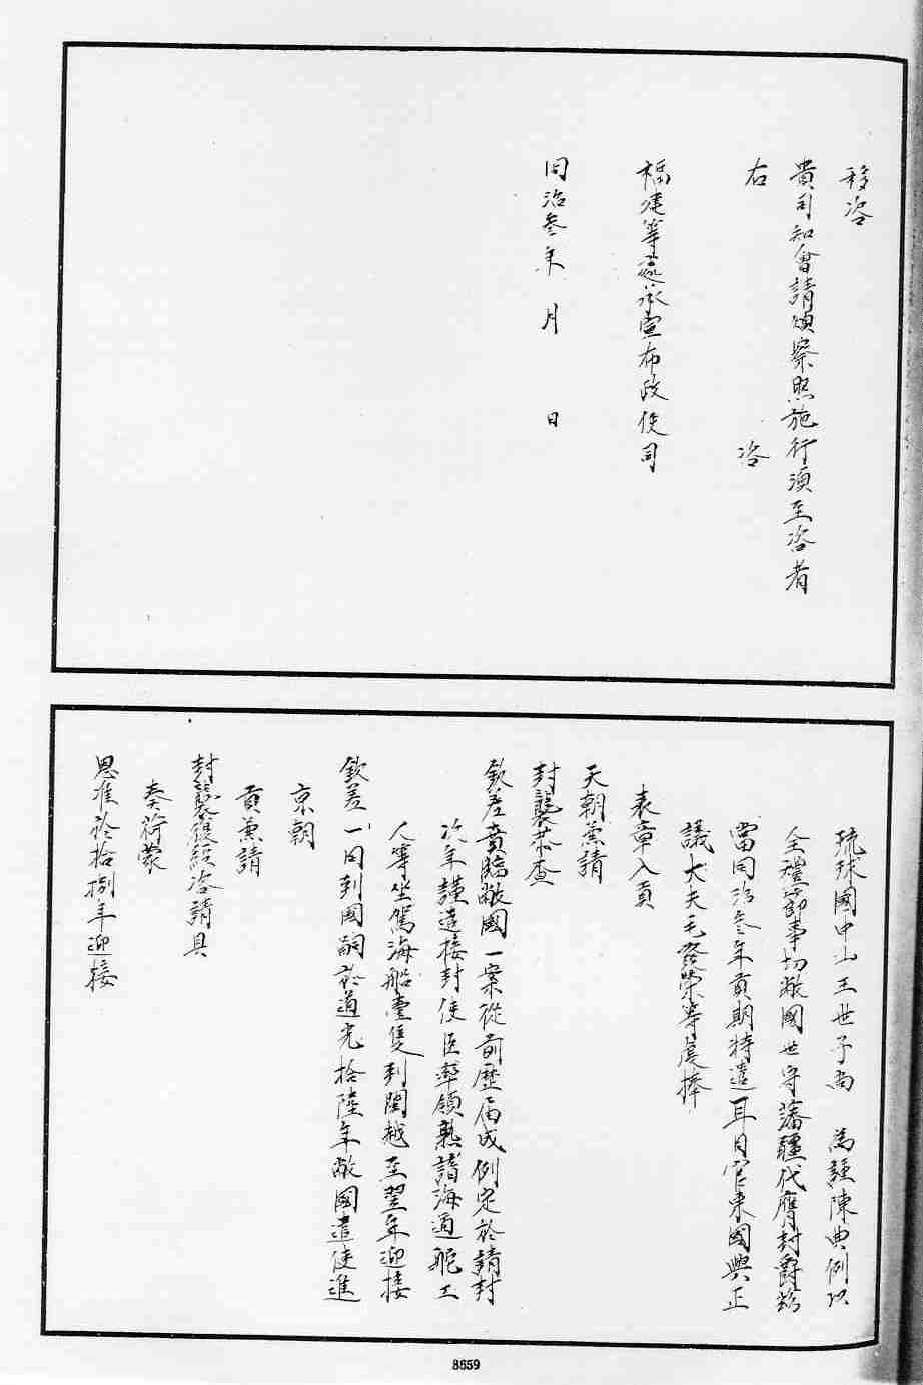 移咨
貴司知會請煩察照施行須至咨者
右　　咨
福建等處承宣布政使司
同治叁年　月　　日
琉球國中山王世子尚　為謹陳典例以
全禮節事切敝國世守藩疆代膺封爵茲
當同治叁年貢期特遣耳目官東國興正
議大夫毛發榮等虔捧
表章入貢
天朝兼請
封襲恭查
欽差賁臨敝國一案從前歷屆成例定於請封
次年謹遣接封使臣率領熟諳海道舵工
人等坐駕海船壹隻到閩越至翌年迎接
欽差一同到國嗣於道光拾陸年敝國遣使進
京朝
貢兼請
封襲復經咨請具
奏荷蒙
恩准於拾捌年迎接
8659